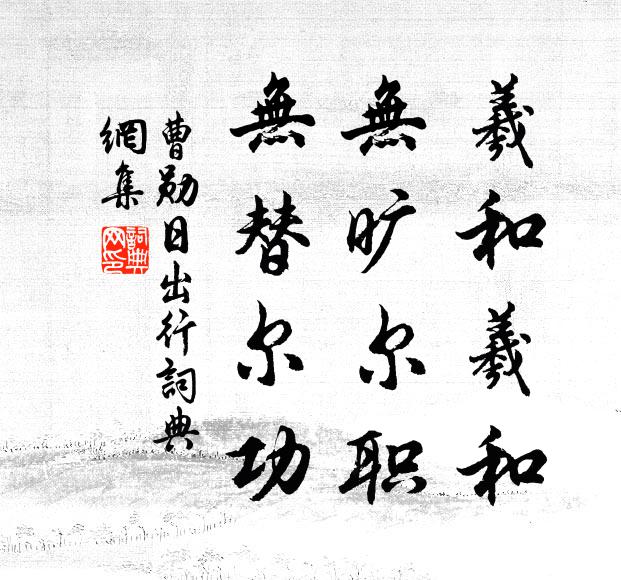 羲和羲和
無旷尔职
無替尔功
曹勋日出行詞典
網集
詞典
网印